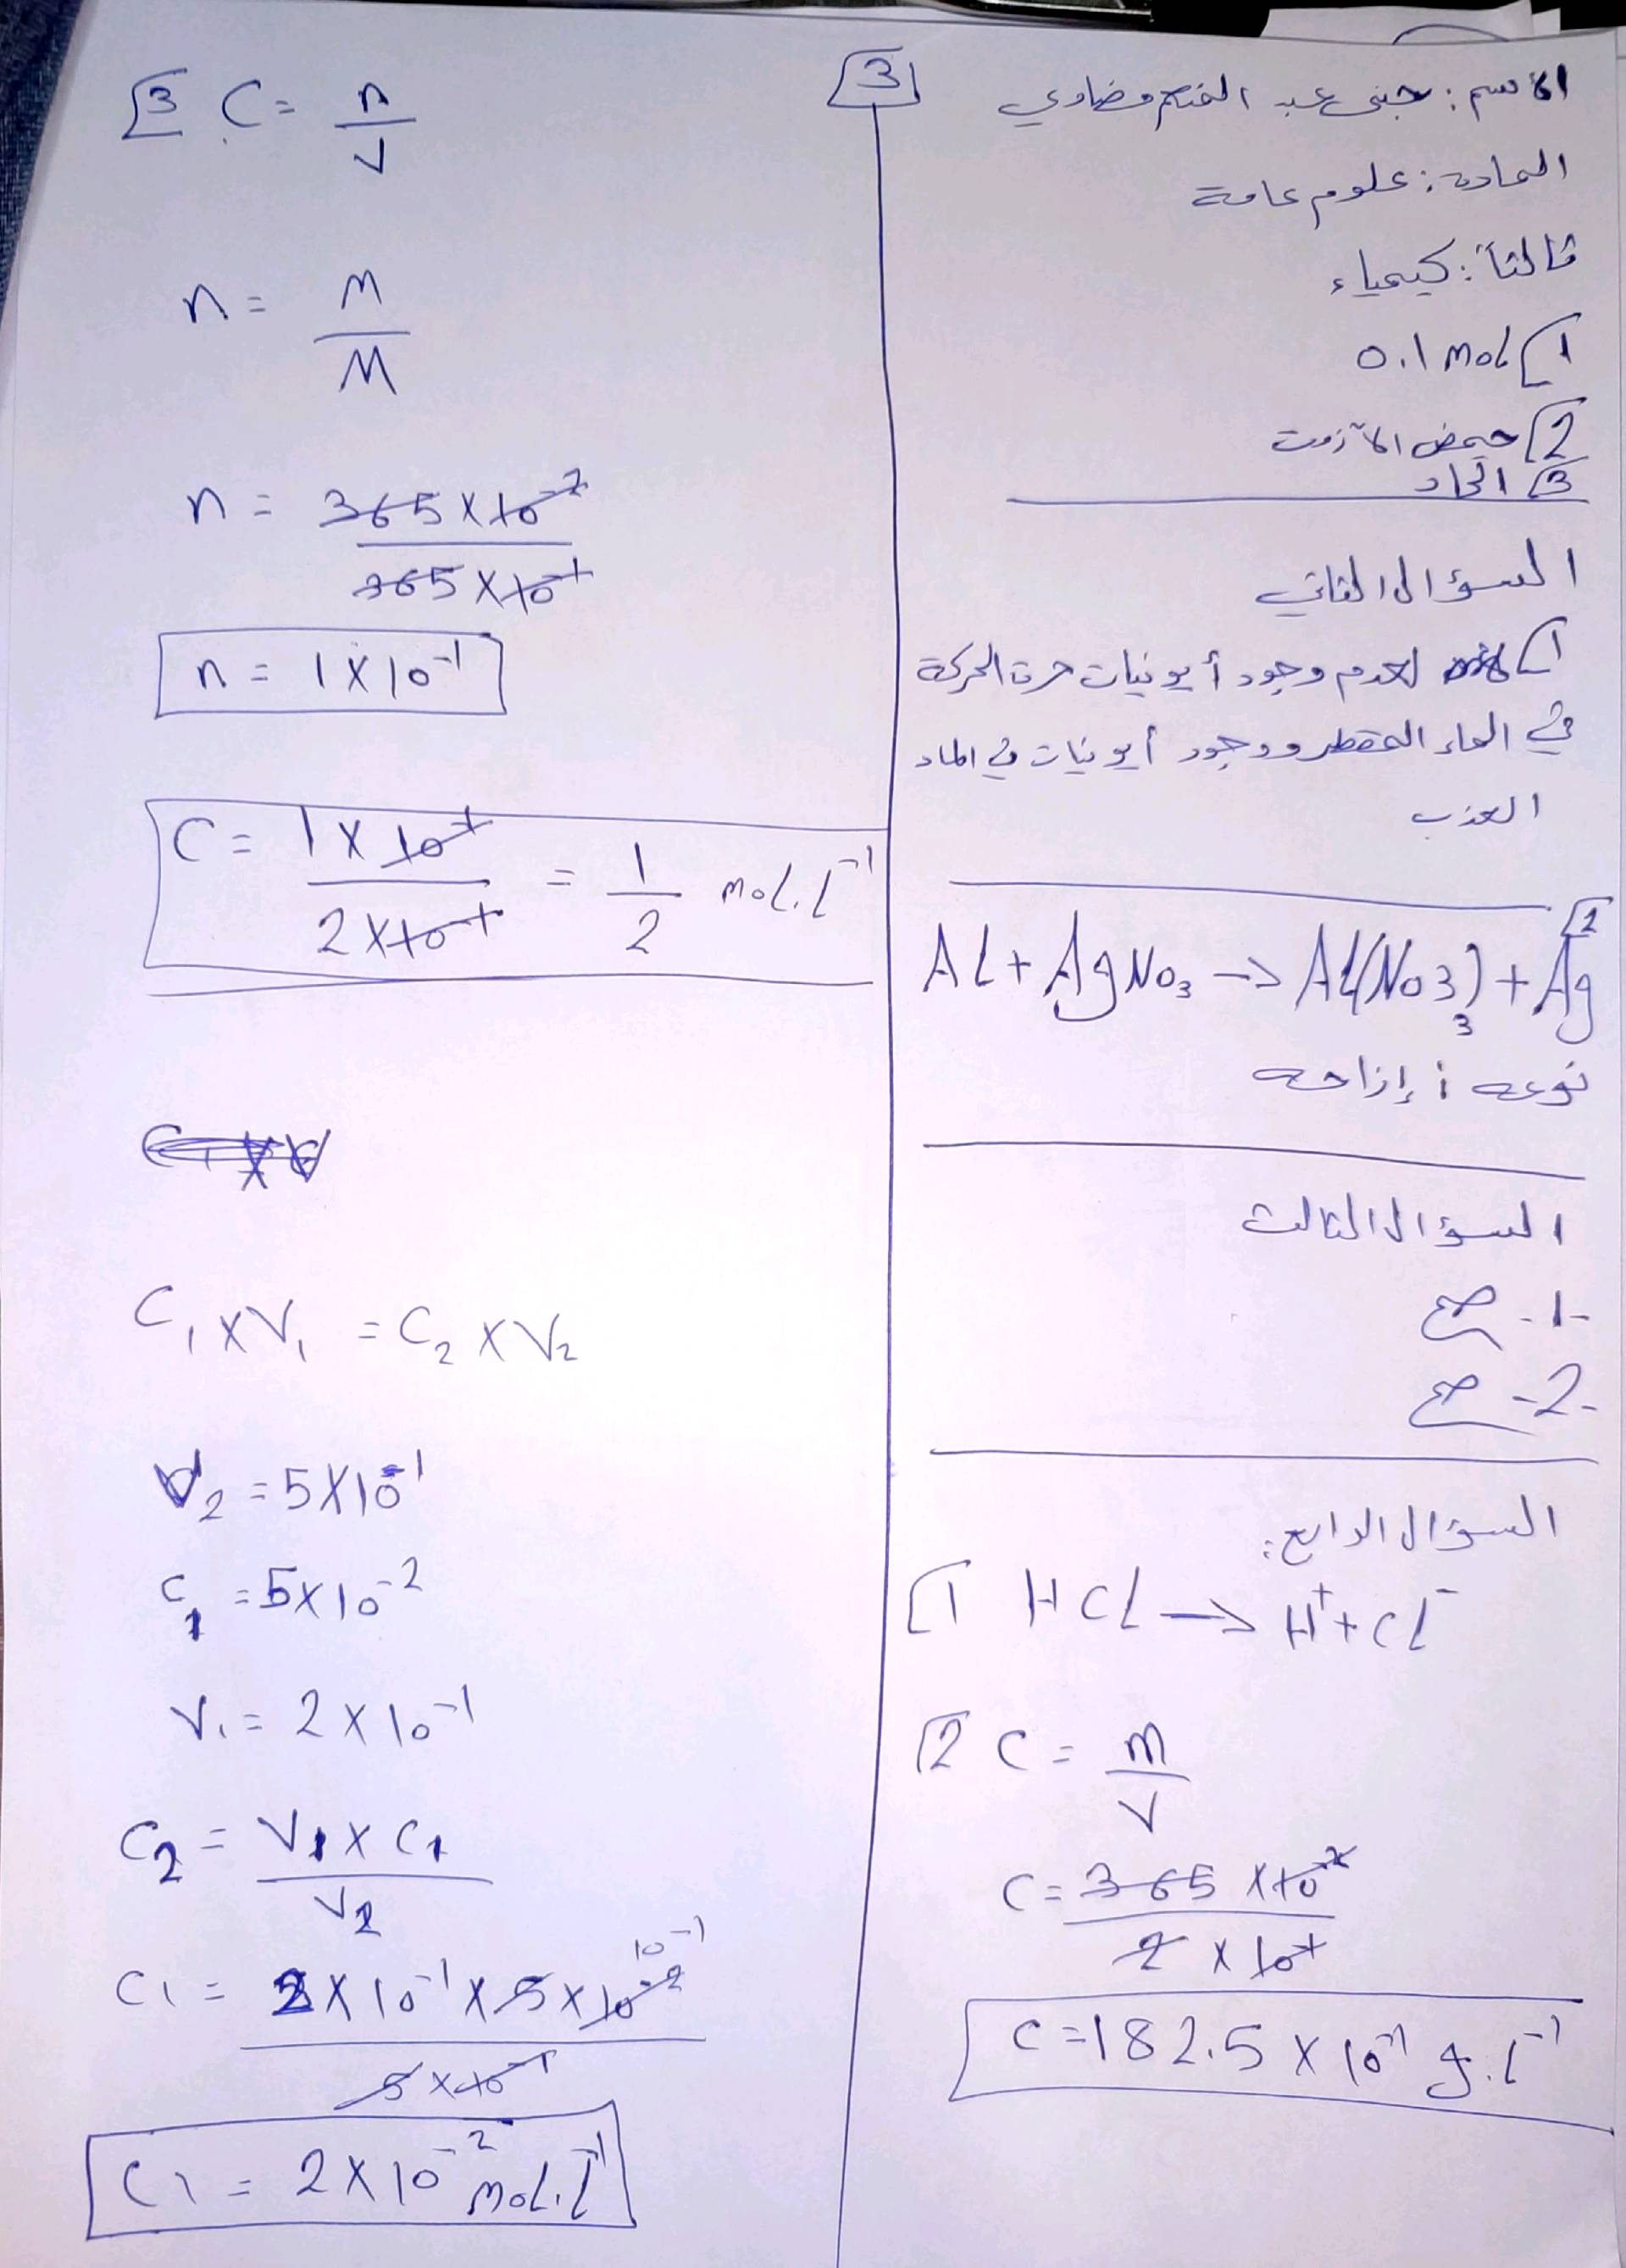 الاسم: جنى عبد الفتاح مضاوي
المادة: علوم عامة
ثالثاً: كيمياء
1 0.1 mol
2 حمض الآزوت
3 الحاد
السؤال الثاني
1 لعدم وجود أيونيات حرة الحركة
في الماء المقطر ووجود أيونيات في الماء
العذب
2
Al + AgNo₃ -> Al(No3)₃ + Ag
نوعه: إزاحه
السؤال الثالث
-1- صح
-2- صح
السؤال الرابع:
1 HCl -> H⁺ + Cl⁻
2 C = m / V
C = 365 × 10⁻² / 2 × 10⁻¹
C = 182.5 × 10⁻¹ g.l⁻¹
3
3 C = n / V
n = m / M
n = 365 × 10⁻² / 365 × 10⁻¹
n = 1 × 10⁻¹
C = 1 × 10⁻¹ / 2 × 10⁻¹ = 1 / 2 mol.l⁻¹
C₁ × V₁ = C₂ × V₂
V₂ = 5 × 10⁻¹
C₁ = 5 × 10⁻²
V₁ = 2 × 10⁻¹
C₂ = V₁ × C₁ / V₂
C1 = 2 × 10⁻¹ × 5 × 10⁻² 10⁻¹ / 5 × 10⁻¹
C1 = 2 × 10⁻² mol.l⁻¹